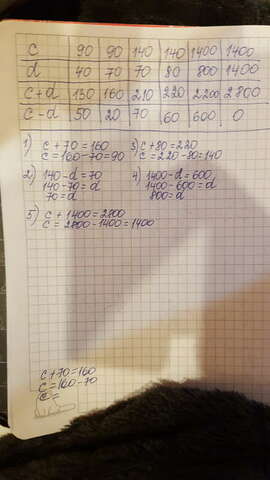 c 90 90 140 140 1400 1400
d 40 70 70 80 800 1400
c+d 130 160 210 220 2200 2800
c-d 50 20 70 60 600 0
1) c+70=160
c=160-70=90
3) c+80=220
c=220-80=140
2) 140-d=70
140-70=d
70=d
4) 1400-d=600
1400-600=d
800=d
5) c+1400=2800
c=2800-1400=1400
c+70=160
c=160-70
c=